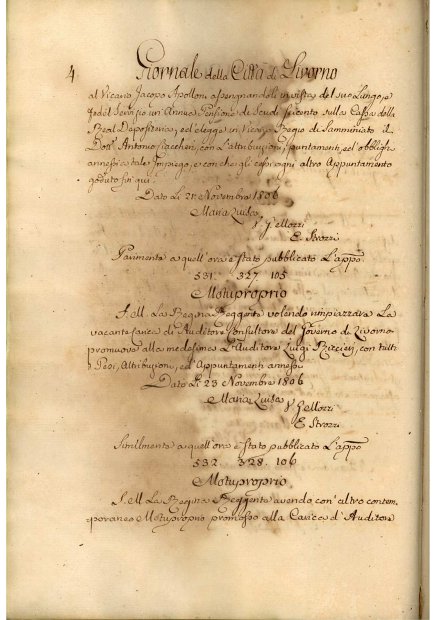 4 Giornale della Città di Livorno
al Vicario Jacopo Apolloni assegnandoli in vista del suo Lungo, e
fedel Servizio un'Annua Pensione di Scudi sulla Cassa della
Real Depositeria, ed elegge in Vicario Regio di Samminiato il
Dott. Antonio con L'attribuzioni, ed obblighi
annessi a tale Impiego, e con che gli ogni altro Appuntamento
goduto fin qui.
Dato Li 21 Novembre 1806
Maria Luisa
V. Jellozzi
E. Strozzi
Parimente a quell'ora è stato pubblicato L'appo
531. 327 105
Motuproprio
S. M. La Regina Reggente volendo rimpiazzare La
vacante carica di Auditore Consultore del Governo di Livorno
promuove alla medesima L'Auditore Luigi con tutti
i Pesi, Attribuzioni, ed Appuntamenti annessi
Dato Li 23 Novembre 1806
Maria Luisa
V. Jellozzi
E. Strozzi
Similmente a quell'ora è stato pubblicato L'appo
532. 328. 106
Motuproprio
S. M. La Regina Reggente avendo con' altro contem-
poraneo Motuproprio promosso alla Carica d'Auditore